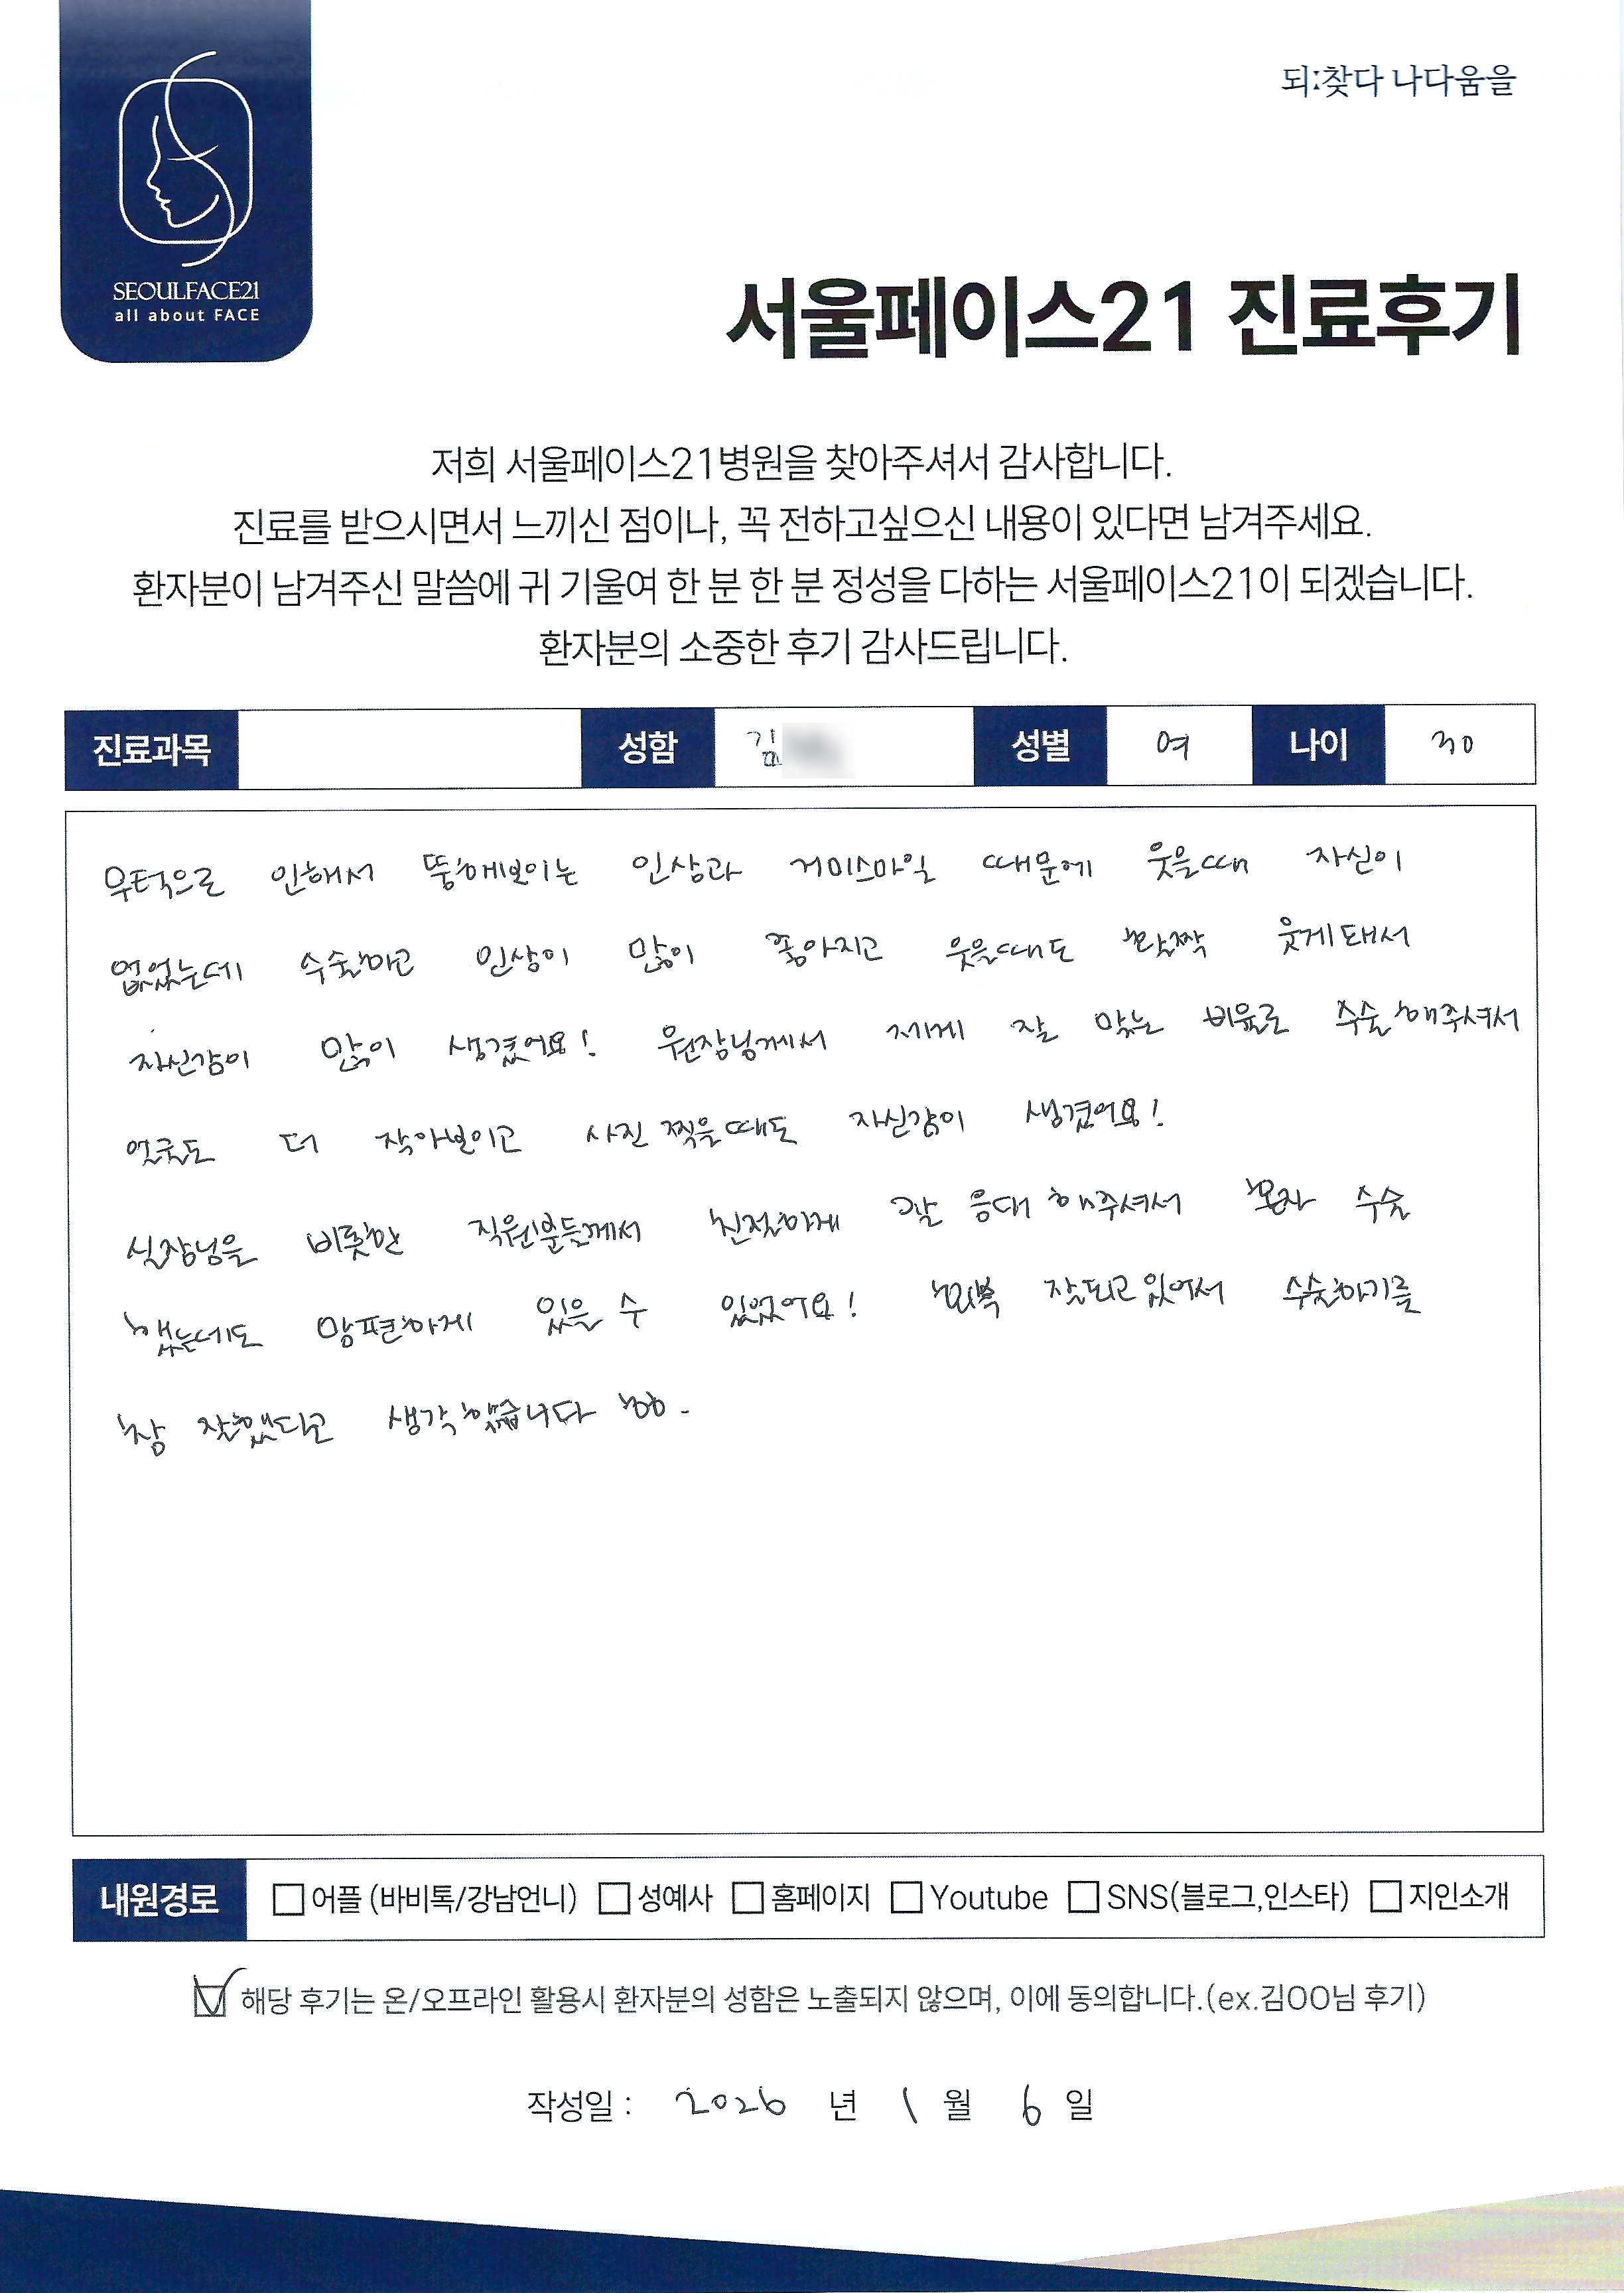 되:찾다 나다움을
SEOULFACE21
all about FACE
서울페이스21 진료후기
저희 서울페이스21병원을 찾아주셔서 감사합니다.
진료를 받으시면서 느끼신 점이나, 꼭 전하고싶으신 내용이 있다면 남겨주세요.
환자분이 남겨주신 말씀에 귀 기울여 한 분 한 분 정성을 다하는 서울페이스21이 되겠습니다.
환자분의 소중한 후기 감사드립니다.
진료과목 성함 김 성별 여 나이 30
무턱으로 인해서 뚱해보이는 인상과 거미스마일 때문에 웃을때 자신이
없었는데 수술하고 인상이 많이 좋아지고 웃을때도 활짝 웃게돼서
자신감이 많이 생겼어요! 원장님께서 제게 잘 맞는 비율로 수술해주셔서
얼굴도 더 작아보이고 사진 찍을때도 자신감이 생겼어요!
실장님을 비롯한 직원분들께서 친절하게 잘 응대 해주셔서 혼자 수술
했는데도 맘편하게 있을 수 있었어요! 회복 잘되고있어서 수술하기를
참 잘했다고 생각했습니다 ㅎㅎ.
내원경로 어플 (바비톡/강남언니) 성예사 홈페이지 Youtube SNS(블로그,인스타) 지인소개
해당 후기는 온/오프라인 활용시 환자분의 성함은 노출되지 않으며, 이에 동의합니다.(ex.김OO님 후기)
작성일 : 2026 년 1 월 6 일